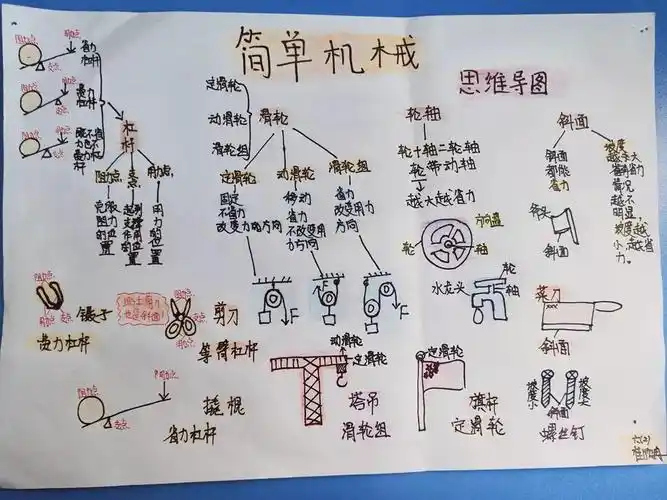 简单机械
思维导图
阻力点
用力点
支点
省力杠杆
阻力点
支点
费力杠杆
阻力点
支点
既不省力也不费力杠杆
杠杆
阻力点
支点
用力点
承阻力的位置
起到支撑作用的位置
用力的位置
定滑轮
动滑轮
滑轮组
滑轮
定滑轮
动滑轮
滑轮组
固定
不省力
改变力的方向
移动
省力
不改变用力方向
省力
改变用力方向
F
F
F
轮轴
轮+轴=轮轴
轮带动轴
轮
越大越省力
方向盘
轮
轴
水龙头
轮
轴
斜面
斜面都能省力
斧头
斜面
菜刀
斜面
坡度小
坡度大
斜面
螺丝钉
阻力点
用力点
支点
镊子
费力杠杆
阻力点
支点
用力点
剪刀
等臂杠杆
阻力点
用力点
支点
撬棍
省力杠杆
动滑轮
定滑轮
塔吊
滑轮组
定滑轮
旗杆
定滑轮
六(2)